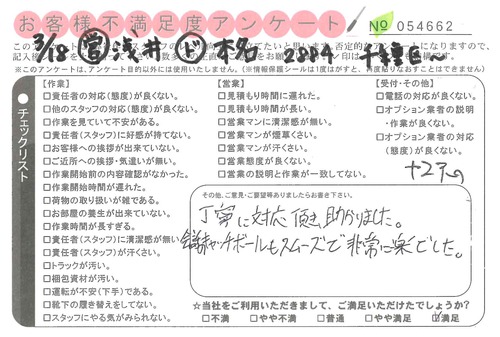 お客様不満足度アンケート
№ 054662
3/18 営 浅井 ど 本名 2884 千種区〜
チェックリスト
【作業】
□責任者の対応(態度)が良くない。
□他のスタッフの対応(態度)が良くない。
□作業を見ていて不安がある。
□責任者(スタッフ)に好感が持てない。
□お客様への挨拶が出来ていない。
□ご近所への挨拶・気遣いが無い。
□作業開始前の内容確認がなかった。
□作業開始時間が遅れた。
□荷物の取り扱いが雑である。
□お部屋の養生が出来ていない。
□作業時間が長すぎる。
□責任者(スタッフ)に清潔感が無い
□責任者(スタッフ)が汗くさい。
□トラックが汚い。
□梱包資材が汚い。
□運転が不安(下手)である。
□靴下の履き替えをしてない。
□スタッフにやる気がみられない。
【営業】
□見積もり時間に遅れた。
□見積もり時間が長い。
□営業マンに清潔感が無い。
□営業マンが煙草くさい。
□営業マンが汗くさい。
□営業態度が良くない。
□営業の説明と作業が一致してない。
【受付・その他】
□電話の対応が良くない。
□オプション業者の説明
・作業が良くない。
□オプション業者の対応
(態度)が良くない。
その他、ご意見・ご要望等ありましたらお書き下さい。
丁寧に対応頂き助かりました。
キャッチボールもスムーズで非常に楽でした。
☆当社をご利用いただきまして、ご満足いただけたでしょうか?
□不満 □やや不満 □普通 □やや満足 ☑満足